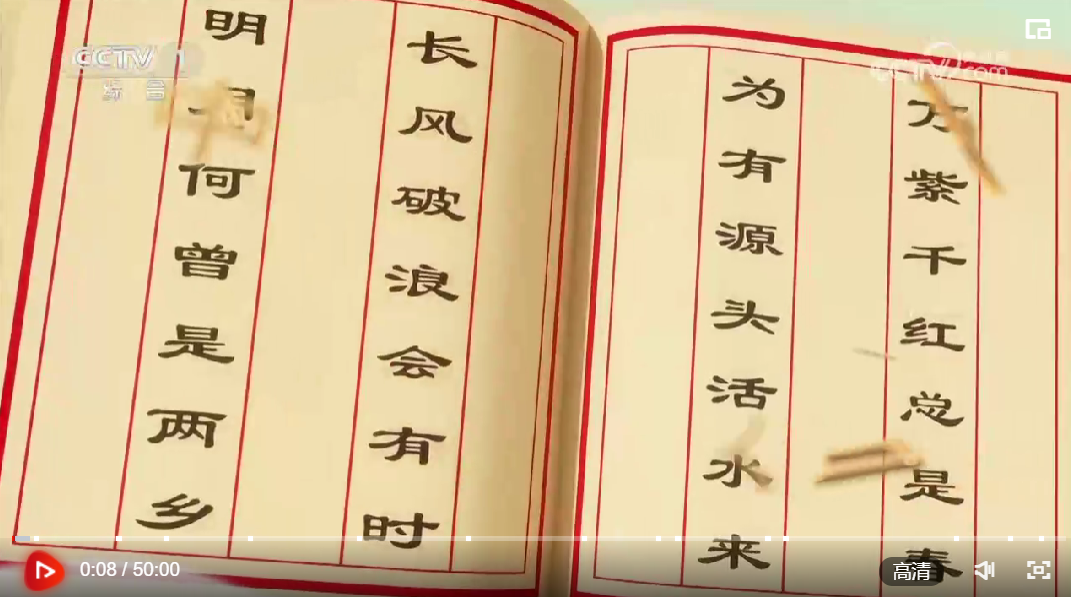 万紫千红总是春
为有源头活水来
长风破浪会有时
明月何曾是两乡
CCTV 1
综合
CCTV.com
0:08 / 50:00
高清